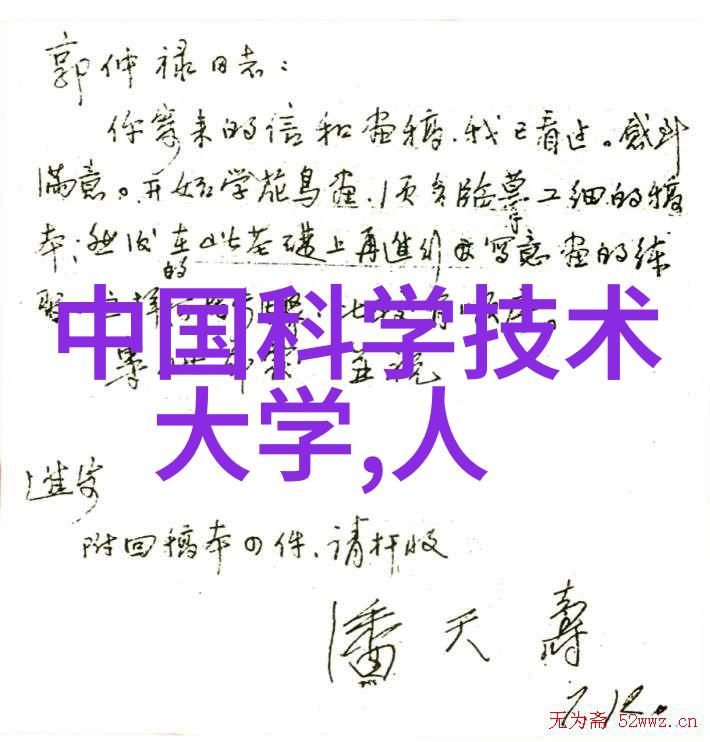 郭仲禄同志：
你寄来的信和画稿，我已看过。感到
满意。开始学花鸟画，须多临摹工细的稿
本；然后在此基础上再进行写意画的练
的
中国科学技术
大学,人
进安
附回稿本四件，请检收
潘天寿
7.12.
无为斋 52wwz.cn